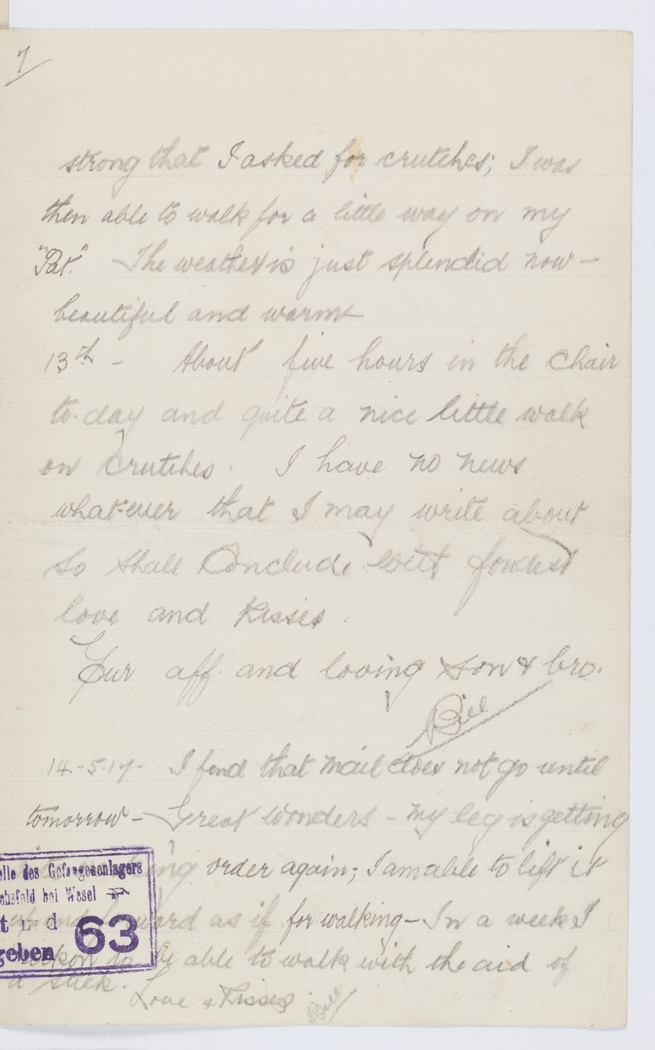 7
strong that I asked for crutches; I was
then able to walk for a little way on my
"Pat." The weather is just splendid now –
beautiful and warm
13th – About five hours in the chair
to-day and quite a nice little walk
on crutches. I have no news
whatever that I may write about
so shall conclude with fondest
love and kisses.
Your aff. and loving son & bro.
Bill
14-5-17- I find that mail does not go until
tomorrow – Great wonders – my leg is getting
order again; I am able to lift it
as if for walking – In a week I
reckon to be able to walk with the aid of
a stick. Love & Kisses. Bill
elle des Gefangenenlagers
chsfeld bei Wesel
t und
geben 63